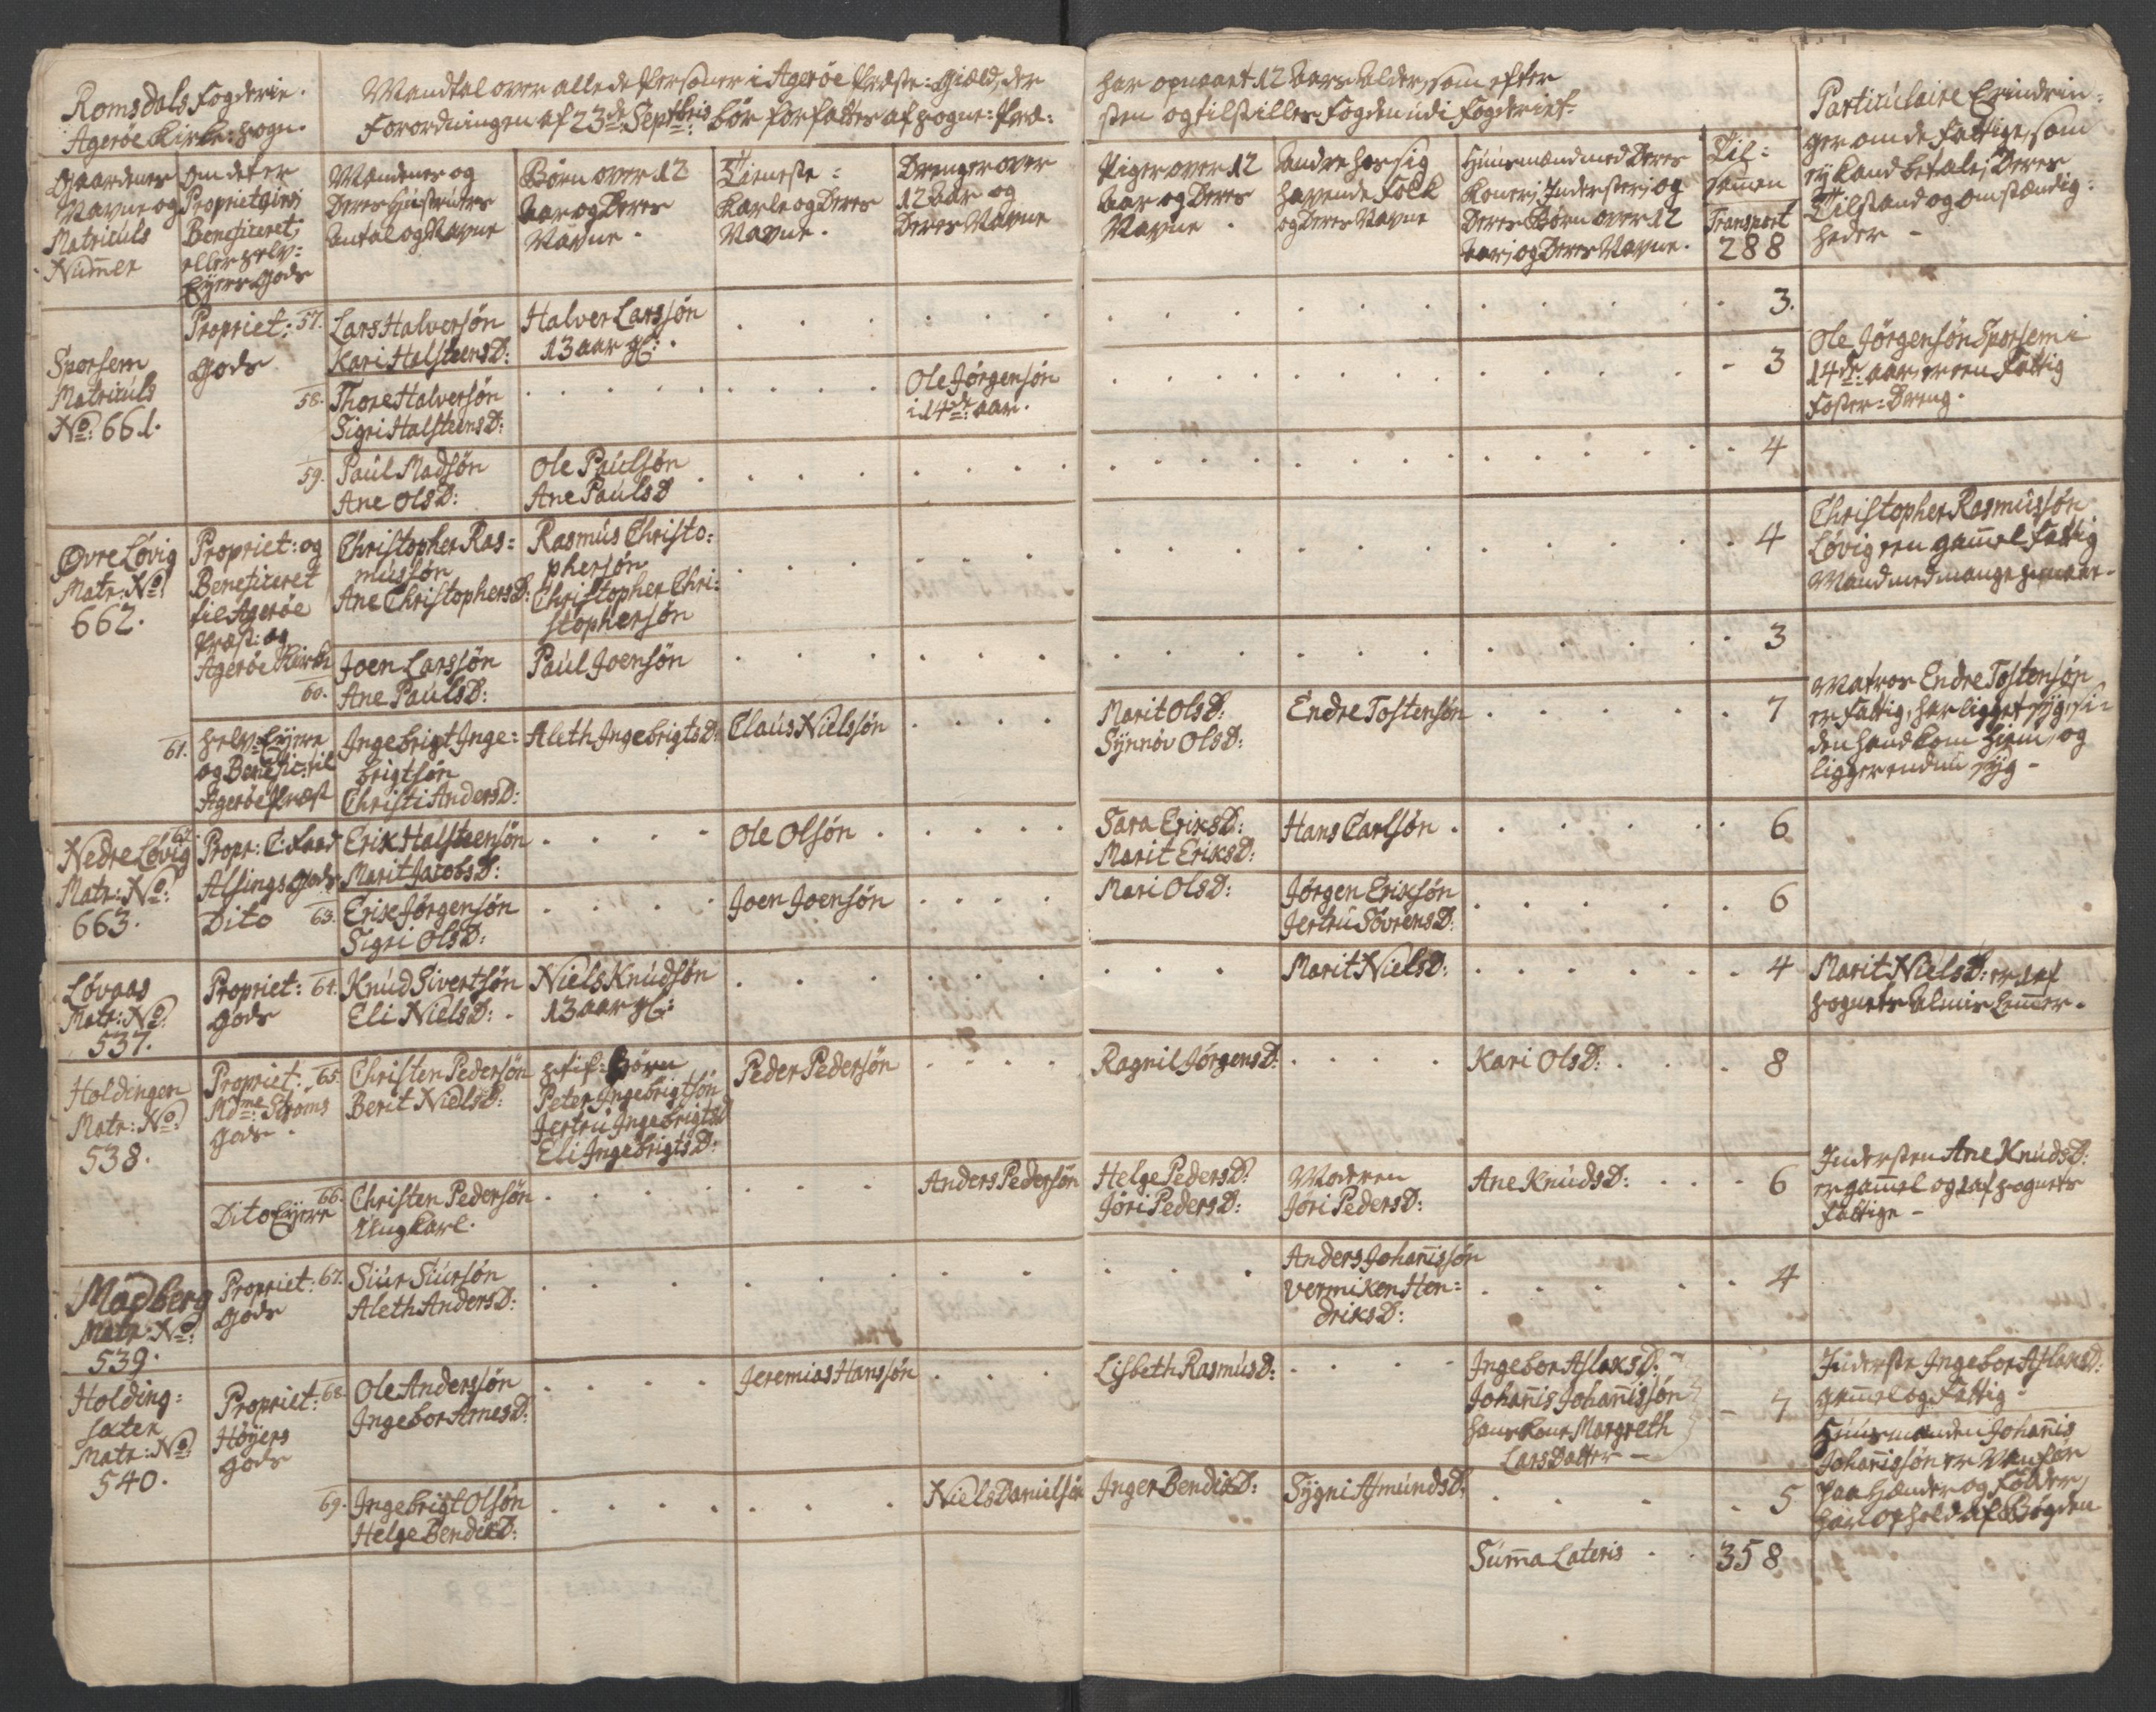 Romsdals Fogderie.
Agerøe Kirke-Sogn.
Mandtal over alle de Persöner i Agerøe Præste-Giæld, der
Forordningen af 23de Septbris bör forfattes af Sogne-Præ-
har opnaaet 12 Aars Alder, som efter
sten og tilstilles Fogden udi Fogderiet.
Particulaire Erindrin-
ger om de Fattige, som
ey kand betale; Deres
Tilstand og omstændig-
heder -
Gaardenes
Navne og
Matriculs
Nummer
Om det er
Propriet
Beneficeret,
eller Selv-
Eyere Gods
Mændenes og
Deres Hustruers
Antal og Navne
Börn over 12
Aar og Deres
Navne.
Tieneste-
Karle og Deres
Navne.
Drenger over
12 Aar og
Deres Navne
Piger over 12
Aar og Deres
Navne.
Andre hos sig
havende Folk
og Deres Navne
Huusmænd med Deres
Koner, Inderster, og
Deres Börn over 12
Aar, og Deres Navne.
Til-
sammen
Transport
288
Sporsem
Matriculs
No: 661.
Propriet:
Gods
57. Lars Halversøn
Kari HalsteensD:
Halver Larssøn
13 aar gl:
3.
58. Thore Halversøn
Sigri HalsteensD:
Ole Jörgensøn
i 14de aar.
3
Ole Jörgensøn Sporsem i
14de aar er en Fattig
Foster-Dreng.
59. Paul Madsøn
Ane OlsD:
Ole Paulsøn
Ane PaulsD
4
Øvre Løvig
Matr: No:
662.
Propriet: og
Beneficeret
til Agerøe
Præst: og
Agerøe Kirke
Christopher Ras-
mussøn
Ane ChristophersD:
Rasmus Christo-
phersøn
Christopher Chri-
stophersøn
4
Christopher Rasmussøn
Løvig en gammel Fattig
Mand med mange
60. Joen Larssøn
Ane PaulsD:
Paul Joensøn
3
61. Selv-Eyere
og Benefic: til
Agerøe Præst
Ingebrigt Inge-
brigtsøn
Christi AndersD:
Aleth IngebrigtsD:
Claus Nielssøn
Marit OlsD:
Synnøv OlsD:
Endre Tostensøn
7
Matros Endre Tostensøn
er Fattig, har ligget syg, si-
den hand kom hiem, og
ligger endnu syg -
Nedre Løvig
Matr: No:
663.
Propr: C: Faad
Alsings Gods
62. Erik Halsteensøn
Marit JacobsD:
Ole Olsøn
Sara EriksD:
Marit EriksD:
Hans Carlsøn
6
Dito
63. Erik Jörgensøn
Sigri OlsD:
Joen Joensøn
Mari OlsD:
Jörgen Eriksøn
Jertru SövrensD:
6
Løvaas
Matr: No:
537.
Propriet:
Gods
64. Knud Sivertsøn
Eli NielsD:
Niels Knudsøn
13 aar gl:
Marit NielsD:
4
Marit NielsD: er 1 af
Sognets Almis Lemmer.
Holdingen
Matr: No:
538.
Propriet:
Mdme: Ströms
Gods.
65. Christen Pedersøn
Berit NielsD:
Stif-Börn
Peter Ingebrigtsøn
Jertru IngebrigtsD
Eli IngebrigtsD:
Peder Pedersøn
Ragnil JörgensD:
Kari OlsD:
8
Dito Eyere
66. Christen Pedersøn
Ungkarl.
Anders Pedersøn
Helge PedersD:
Jöri PedersD:
Moderen
Jöri PedersD:
Ane KnudsD:
6
Indersten Ane KnudsD:
er gammel og 1 af Sognets
Fattige -
Madberg
Matr: No:
539.
Propriet:
Gods
67. Siur Siursøn
Aleth AndersD:
Anders Johannissøn
Vermiken Hen-
driksD:
4
Holding-
sæter
Matr: No:
540.
Propriet:
Höyers
Gods
68. Ole Anderssøn
Ingebor ArnesD:
Jeremias Hanssøn
Lisbeth RasmusD:
Ingebor AslaksD:
Johannis Johannissøn
hans Kone Margreth
LarsDatter -
7
Inderste Ingebor AslaksD:
gammel og Fattig -
Huusmanden Johannis
Johannissøn er Vanför
paa Hænder og Födder,
har ophold af Bögden
69. Ingebrigt Olsøn
Helge BendixD:
Niels Danielsøn
Inger BendixD:
Sygni AsmundsD:
5
Summa Lateris
358